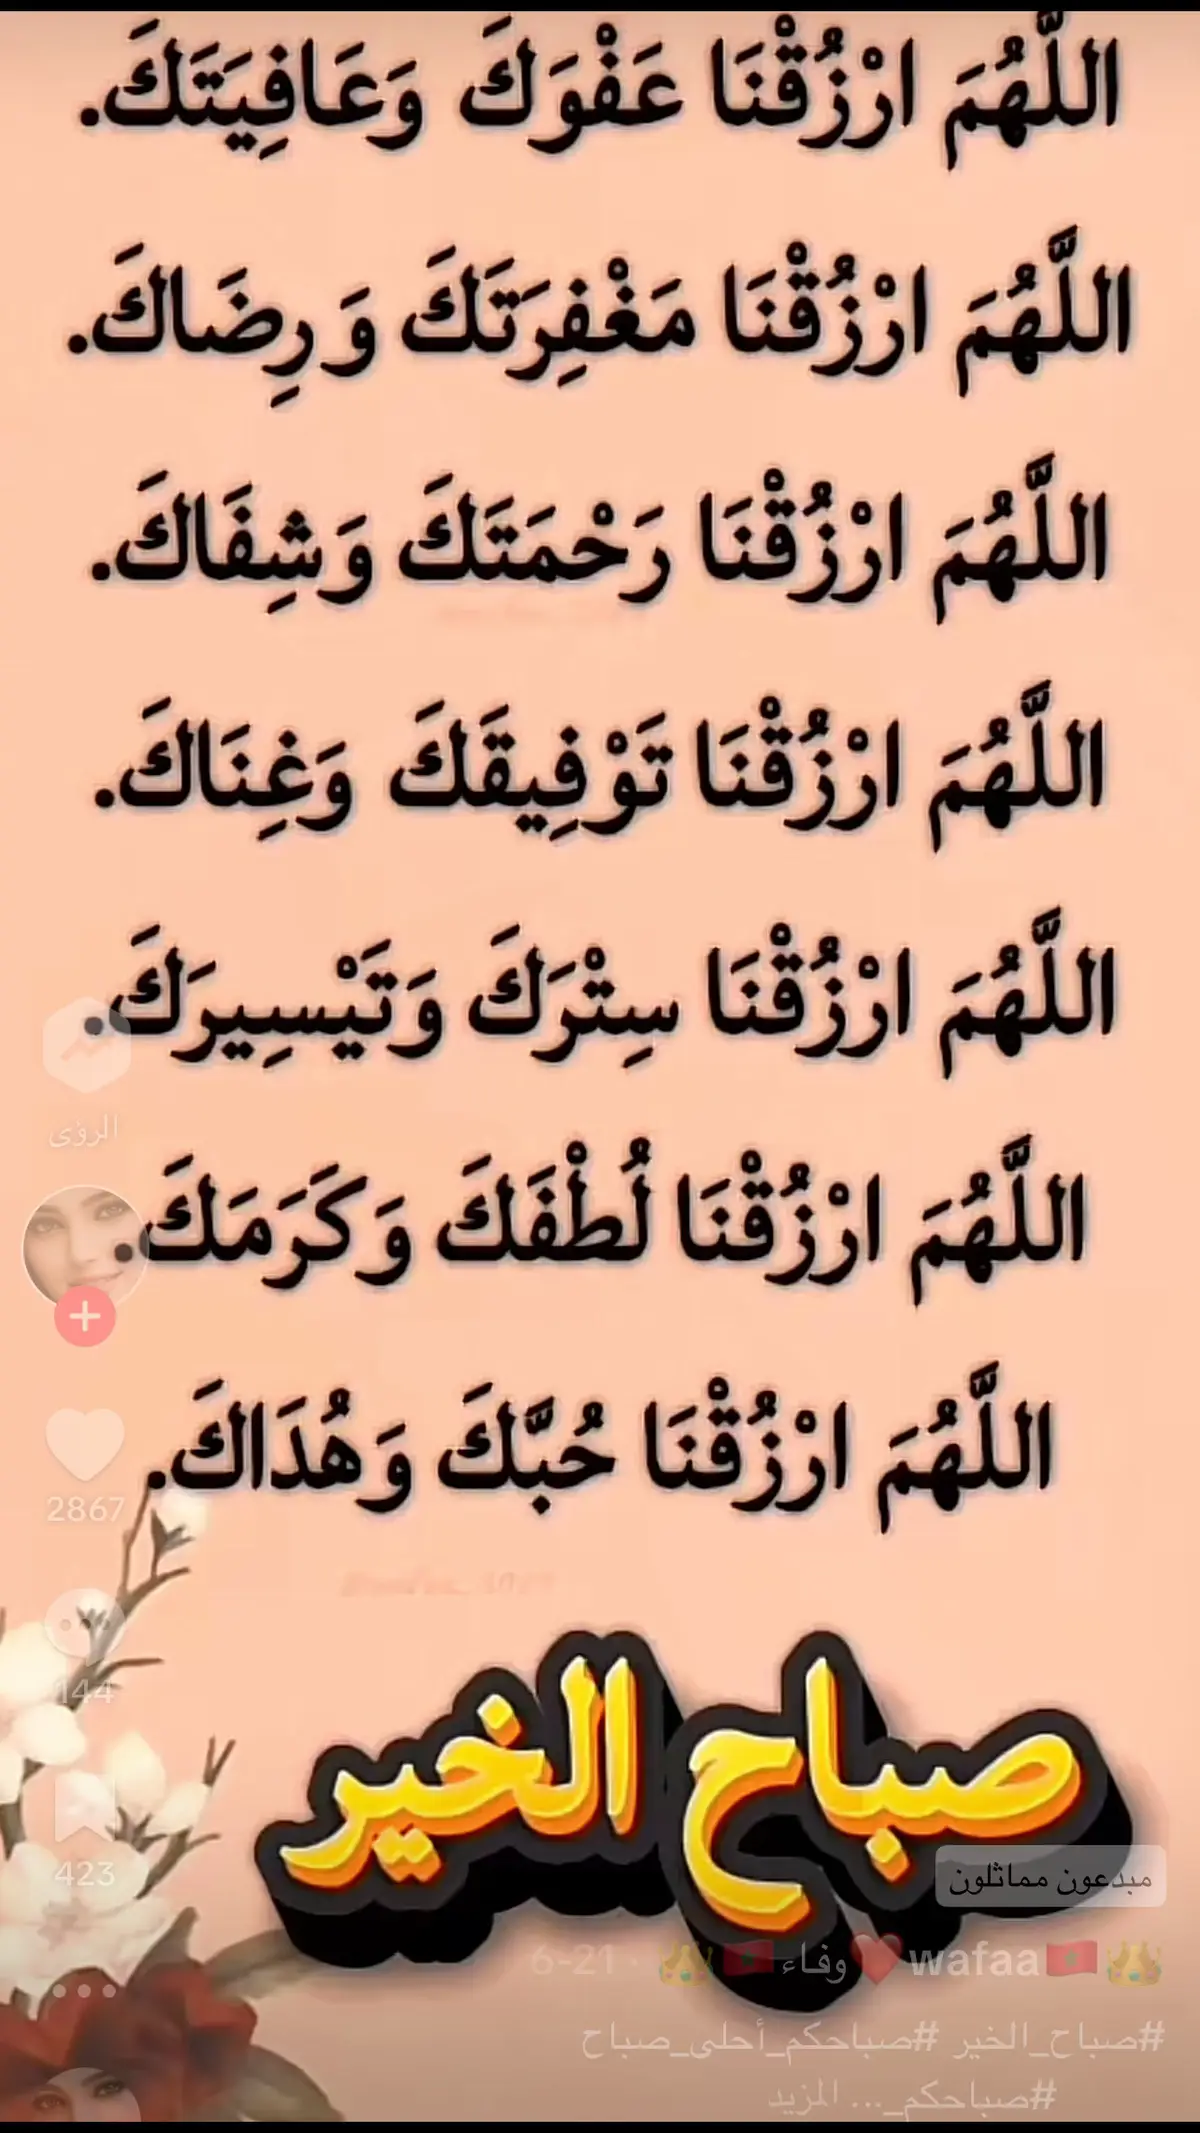 اللَّهُمَ ارْزُقْنَا عَفْوَكَ وَعَافِيَتَكَ.
اللَّهُمَ ارْزُقْنَا مَغْفِرَتَكَ وَرِضَاكَ.
اللَّهُمَ ارْزُقْنَا رَحْمَتَكَ وَشِفَاكَ.
اللَّهُمَ ارْزُقْنَا تَوْفِيقَكَ وَغِنَاكَ.
اللَّهُمَ ارْزُقْنَا سِتْرَكَ وَتَيْسِيرَكَ.
الرؤى
اللَّهُمَ ارْزُقْنَا لُطْفَكَ وَكَرَمَكَ.
اللَّهُمَ ارْزُقْنَا حُبَّكَ وَهُدَاكَ.
2867
144
صباح الخير
423
مبدعون مماثلون
👑🇲🇦wafaa❤️وفاء🇲🇦👑 · 6-21
#صباح_الخير #صباحكم_أحلى_صباح
#صباحكم_... المزيد